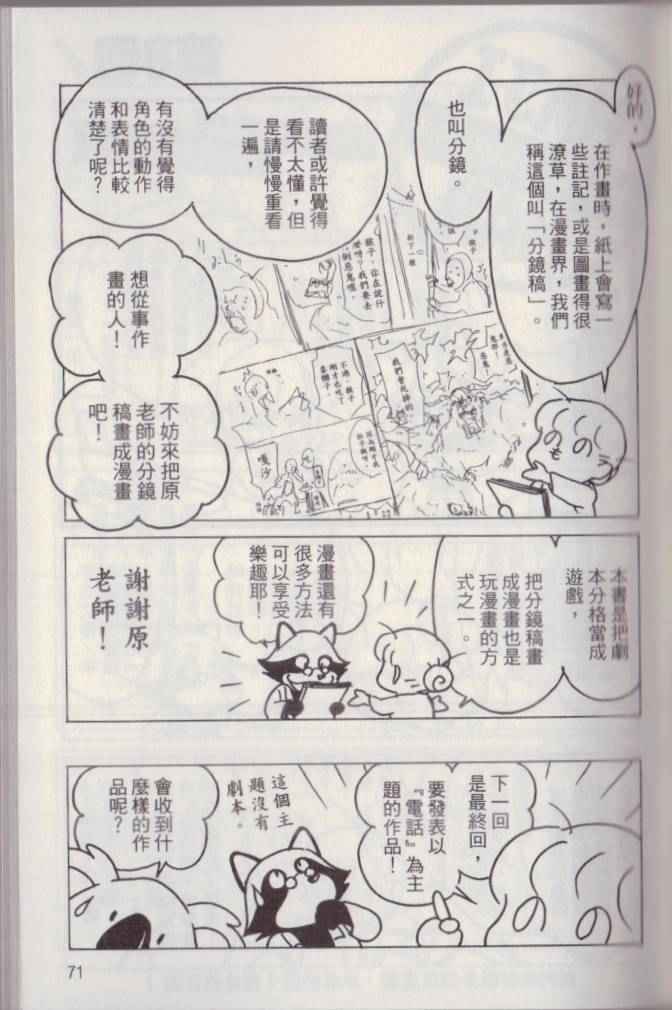 好的，
在作畫時，紙上會寫一
些註記，或是圖畫得很
潦草，在漫畫界，我們
稱這個叫「分鏡稿」。
也叫分鏡。
讀者或許覺得
看不太懂，但
是請慢慢重看
一遍，
有沒有覺得
角色的動作
和表情比較
清楚了呢？
想從事作
畫的人！
不妨來把原
老師的分鏡
稿畫成漫畫
吧！
我們會死掉的
嘎沙
本書是把劇
本分格當成
遊戲，
把分鏡稿畫
成漫畫也是
玩漫畫的方
式之一。
漫畫還有
很多方法
可以享受
樂趣耶！
謝謝原
老師！
下一回
是最終回，
要發表以
『電話』為主
題的作品！
這個主
題沒有
劇本。
會收到什
麼樣的作
品呢？
71